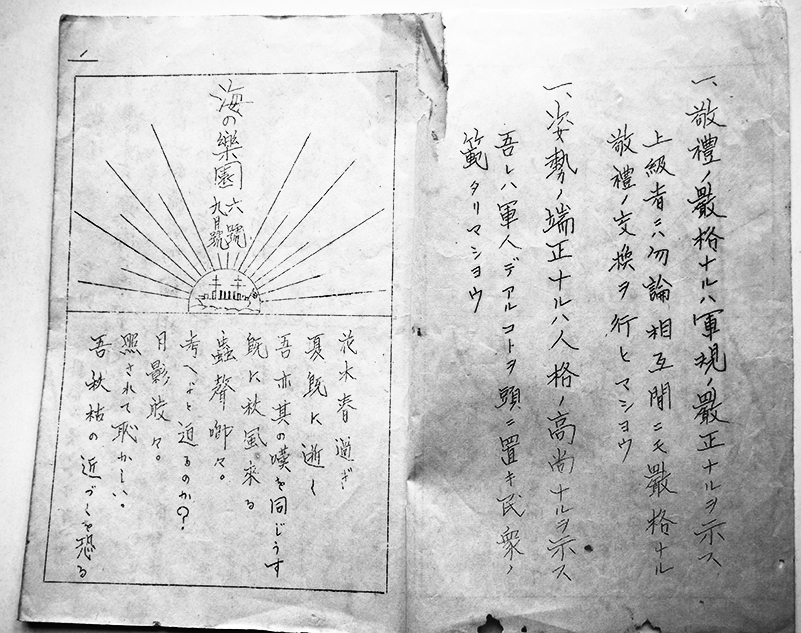 一、敬禮ノ嚴格ナルハ軍規ノ嚴正ナルヲ示ス
上級者ニハ勿論相互間ニモ嚴格ナル
敬禮ノ交換ヲ行ヒマシヨウ
一、姿勢ノ端正ナルハ人格ノ高尚ナルヲ示ス
吾レハ軍人デアルコトヲ頭ニ置キ民衆ノ
範タリマシヨウ
海の樂園
六號
九月號
花水春過ぎ
夏既に逝く
吾亦其の嘆を同じうす
既に秋風來る
蟲聲喞々。
考へよと迫るのか？
月影淡々。
照されて恥かしい。
吾秋枯の近づくを恐る